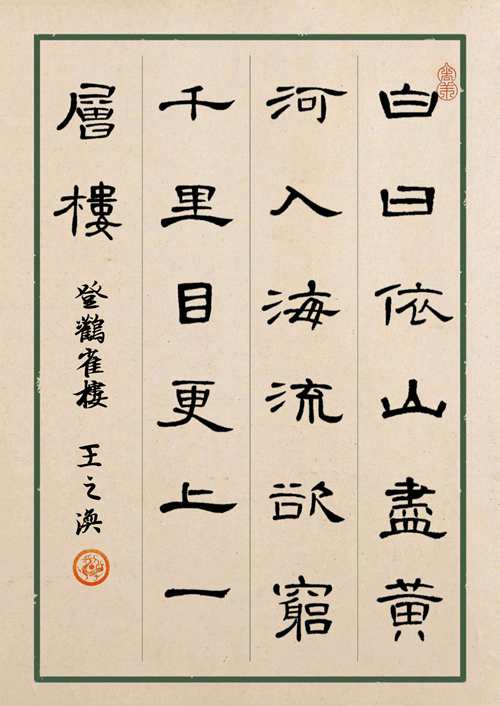 白日依山盡黄
河入海流欲窮
千里目更上一
層樓
登鸛雀樓 王之渙